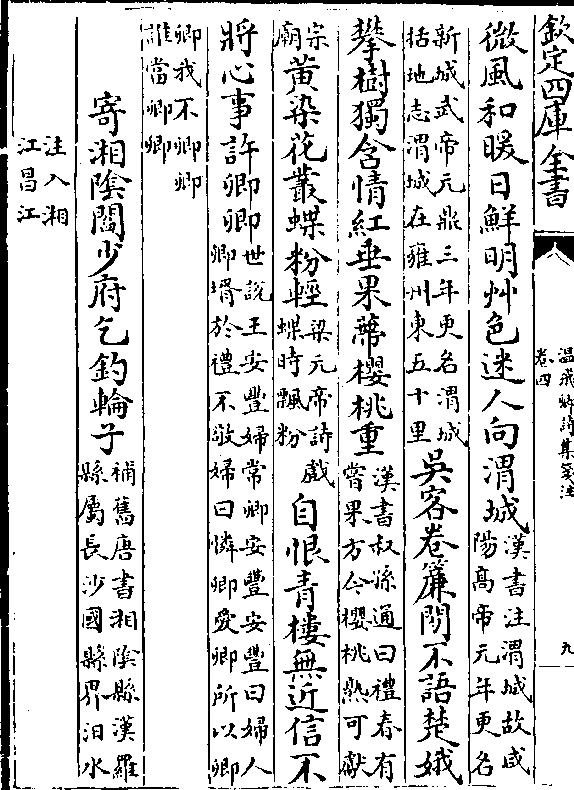 欽定四庫全書
溫飛卿詩集箋注
卷四
九
微風和暖日鮮明艸色迷人向渭城
漢書注渭城故咸
陽高帝元年更名
新城武帝元鼎三年更名渭城
括地志渭城在雍州東五十里
吳客卷簾閒不語楚娥
攀樹獨含情紅垂果蔕櫻桃重
漢書叔孫通曰禮春有
嘗果方今櫻桃熟可獻
宗
廟
黃染花叢蝶粉輕
梁元帝詩戲
蝶時飄粉
自恨青樓無近信不
將心事許卿卿
世說王安豐婦常卿安豐安豐曰婦人
卿壻於禮不敬婦曰憐卿愛卿所以卿
卿我不卿卿
誰當卿卿
寄湘陰閻少府乞釣輪子
補舊唐書湘陰縣漢羅
縣屬長沙國縣界汨水
注入湘
江昌江